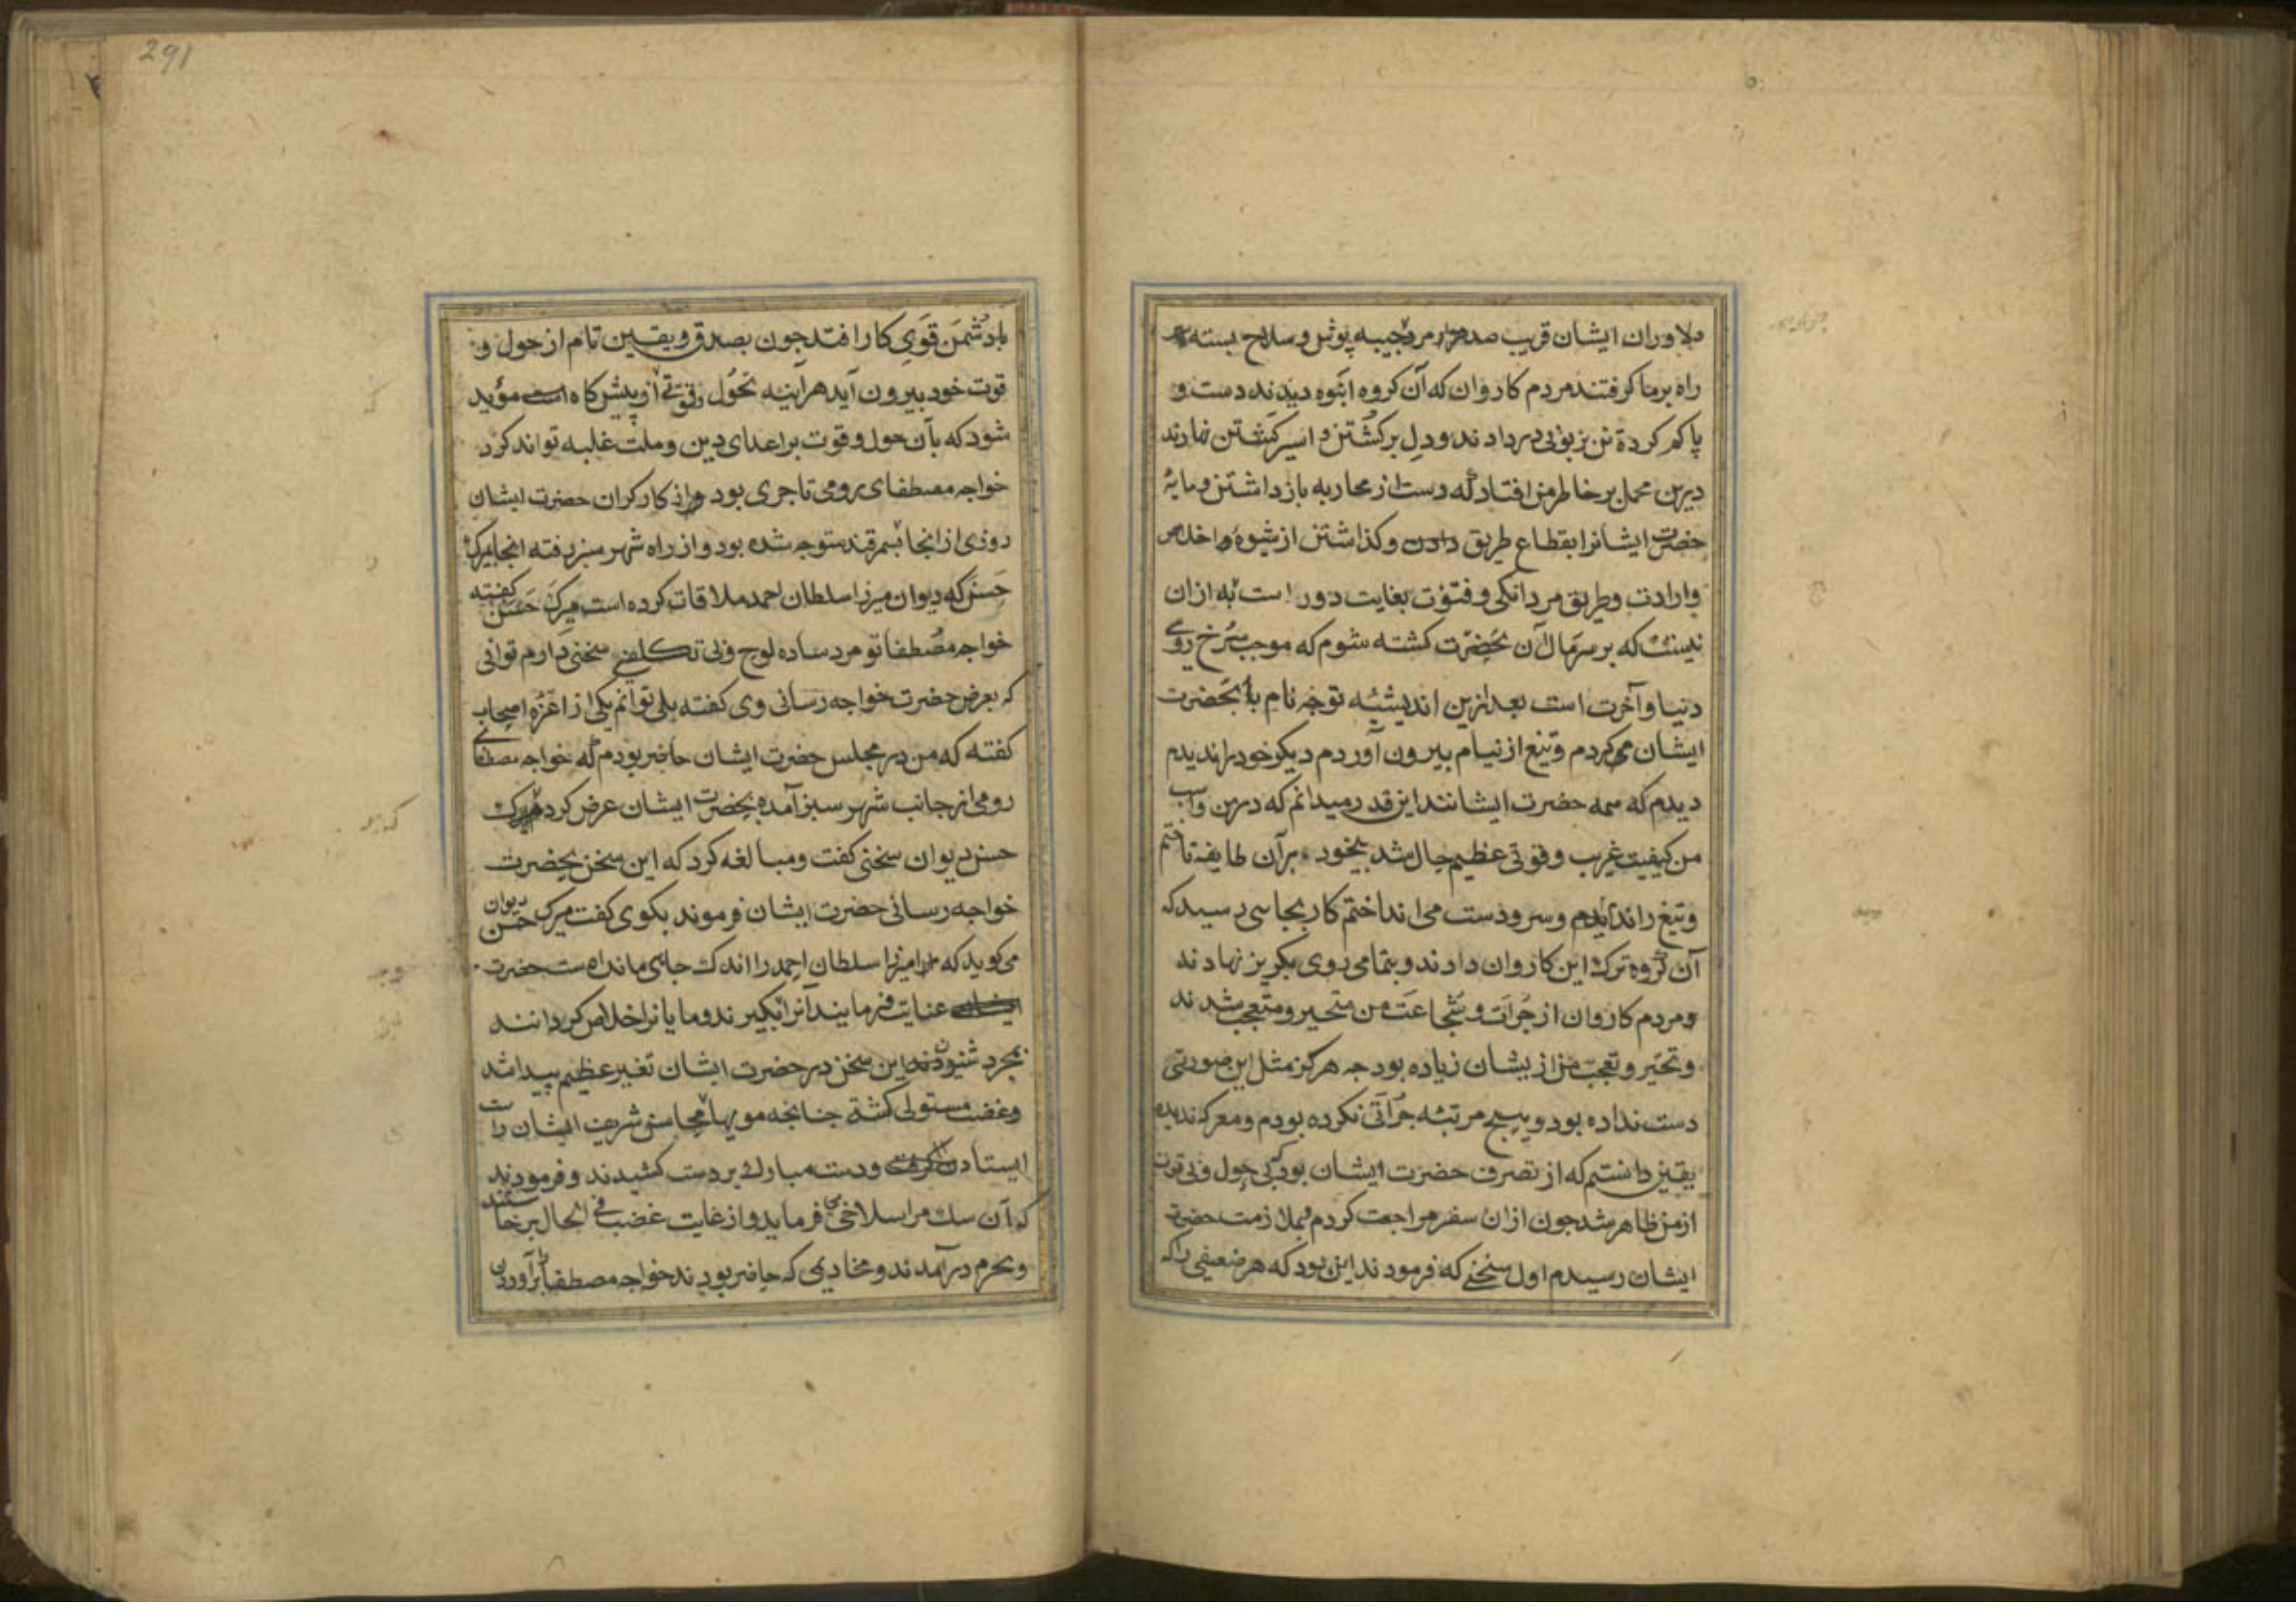 دلاوران ایشان قریب صد مرد جیبه پوش و سلاح بسته
راه بر ما کرفتند مردم کاروان که آن کروه انبوه دیدند دست و
پا کم کرده تن بزبونی در دادند و دل بر کشتن و اسیر کشتن نهادند
درین محل بر خاطر من افتاد که دست از محاربه باز داشتن و مایۀ
حضرت ایشانرا بقطاع طریق دادن و کذاشتن از شیوۀ اخلاص
وارادت و طریق مردانکی و فتوّت بغایت دور است به ازان
نیست که بر سر مال آن حضرت کشته شوم که موجب سرخ رویی
دنیا و آخرت است بعد ازین اندیشه توجه تام بآنحضرت
ایشان می کردم و تیغ از نیام بیرون آوردم دیکر خود را ندیدم
دیدم که همه حضرت ایشانند این قدر میدانم که درین
من کیفیت غریب و قوتی عظیم حال شد بیخود بر آن طایفه تاختم
و تیغ راندم و سر و دست می انداختم کار بجایی رسید که
آن کروه ترک این کاروان دادند و بتمامی روی بکریز نهادند
و مردم کاروان از جُرأت و شجاعت من متحیر و متعجب شدند
و تحیر و تعجب من از یشان زیاده بود جه هرکز مثل این صورتی
دست نداده بود و بهیچ مرتبه جُرأتی نکرده بودم و معرکه ندیده
یقین دانستم که از تصرف حضرت ایشان بود که بی حول و بی قوت
از من ظاهر شد جون ازان سفر مراجعت کردم و بملازمت حضرت
ایشان رسیدم اول سخنی که فرمودند این بود که هر ضعیفی را که
291
با دشمن قوی کار افتد جون بصدق و یقین تام از حول و
قوت خود بیرون آید هر آینه بحول و قوتی از پیش کاه مؤید
شود که بآن حول و قوت بر اعدای دین و ملت غلبه تواند کرد
خواجه مصطفای رومی تاجری بود و از کارکران حضرت ایشان
روزی از انجا بسمرقند متوجه شده بود و از راه شهر سبز رفته انجا میرک
حسن که دیوان میرزا سلطان احمد ملاقات کرده است میرک حسن کفته
خواجه مصطفا تو مرد ساده لوح و بی تکلفی سخنی دارم توانی
که بعرض حضرت خواجه رسانی وی کفته بلی توانم یکی از اعزّه اصحاب
کفته که من در مجلس حضرت ایشان حاضر بودم که خواجه مصطفای
رومی از جانب شهر سبز آمده بحضرت ایشان عرض کرد میرک
حسن دیوان سخنی کفت و مبالغه کرد که این سخن بحضرت
خواجه رسانی حضرت ایشان فرموند بکوی کفت میرک حسن دیوان
می کوید که میرزا سلطان احمد را اندک جایی مانده است حضرت
عنایت فرمایند آنرا بکیرند و ما یانرا خلاص کردانند
بمجرد شنودن این سخن در حضرت ایشان تغیر عظیم پیدا شد
و غضب مستولی کشته جنانجه مویها محاسن شریف ایشان راست
ایستادن کرفت و دست مبارک بر دست کشیدند و فرمودند
که آن سک مرا سلاخی می فرماید و از غایت غضب فی الحال برخاستند
و بحرم در آمدند و مخادیمی که حاضر بودند خواجه مصطفا را بر آوردن